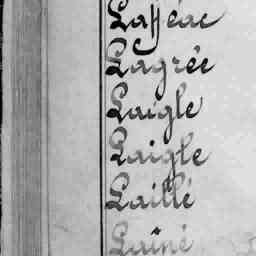 Lafféac
Lagrée
Laigle
Laigle
Laillé
Laîné